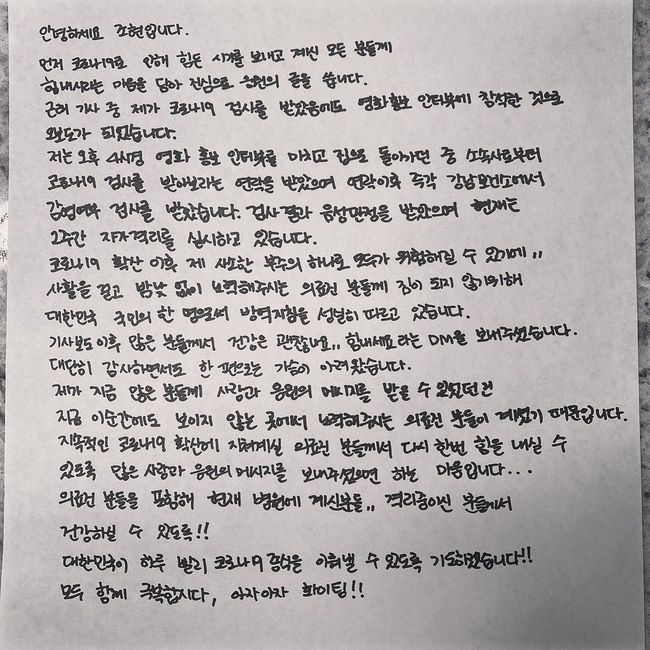 안녕하세요 조현입니다.
먼저 코로나19로 인해 힘든 시기를 보내고 계신 모든 분들께
힘내시라는 마음을 담아 진심으로 응원의 글을 씁니다.
근래 기사 중 제가 코로나19 검사를 받았음에도 영화홍보 인터뷰에 참석한 것으로
보도가 되었습니다.
저는 오후 4시경 영화 홍보 인터뷰를 마치고 집으로 돌아가던 중 소속사로부터
코로나19 검사를 받아보라는 연락을 받았으며 연락이후 즉각 강남보건소에서
감염여부 검사를 받았습니다. 검사결과 음성판정을 받았으며 현재는
2주간 자가격리를 실시하고 있습니다.
코로나19 확산 이후 제 사소한 부주의 하나로 모두가 위험해질 수 있기에,,
사활을 걸고 밤낮 없이 노력해주시는 의료건 분들께 짐이 되지 않기위해
대한민국 국민의 한 명으로서 방역지침을 성실히 따르고 있습니다.
기사보도 이후 많은 분들께서 건강은 괜찮냐,, 힘내세요 라는 DM을 보내주셨습니다.
대단히 감사하면서도 한 편으로는 가슴이 아려왔습니다.
제가 지금 많은 분들께 사랑과 응원의 메시지를 받을 수 있었던건
지금 이순간에도 보이지 않는 곳에서 노력해주시는 의료건 분들이 계셨기 때문입니다.
지속적인 코로나19 확산에 지쳐계실 의료건 분들께서 다시 한번 힘을 내실 수
있도록 많은 사랑과 응원의 메시지를 보내주셨으면 하는 마음입니다...
의료건 분들을 포함해 현재 병원에 계신분들,, 격리중이신 분들께서
건강하실 수 있도록!!
대한민국이 하루 빨리 코로나19 종식을 이뤄낼 수 있도록 기도하겠습니다!!
모두 함께 극복합시다, 아자아자 화이팅!!